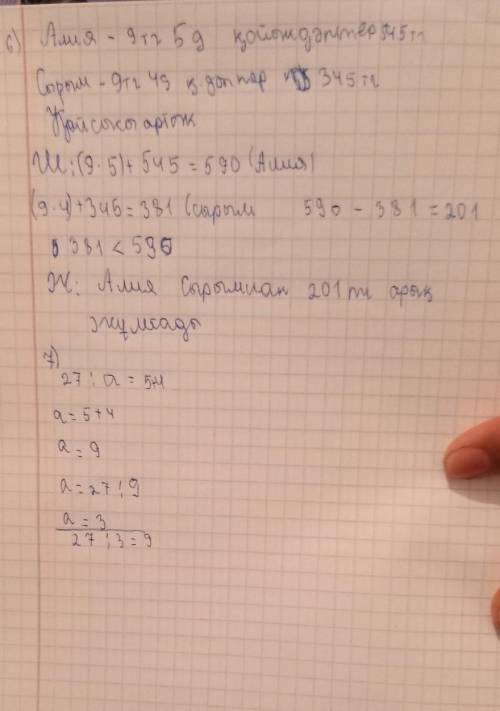 6) Алия - 9тг 5д қойындәптер 545тг
Сырым - 9тг 4д қ.дәптер 345тг
Қайсысы артық
Ш: (9·5)+ 545 = 590 (Алия)
(9·4)+345=381 (сырым 590 - 381 = 201
381 < 590
Ж: Алия Сырымнан 201тг арық
жұмсады
7)
27 : a = 5+4
a = 5+4
a = 9
a = 27 : 9
a = 3
27 : 3 = 9